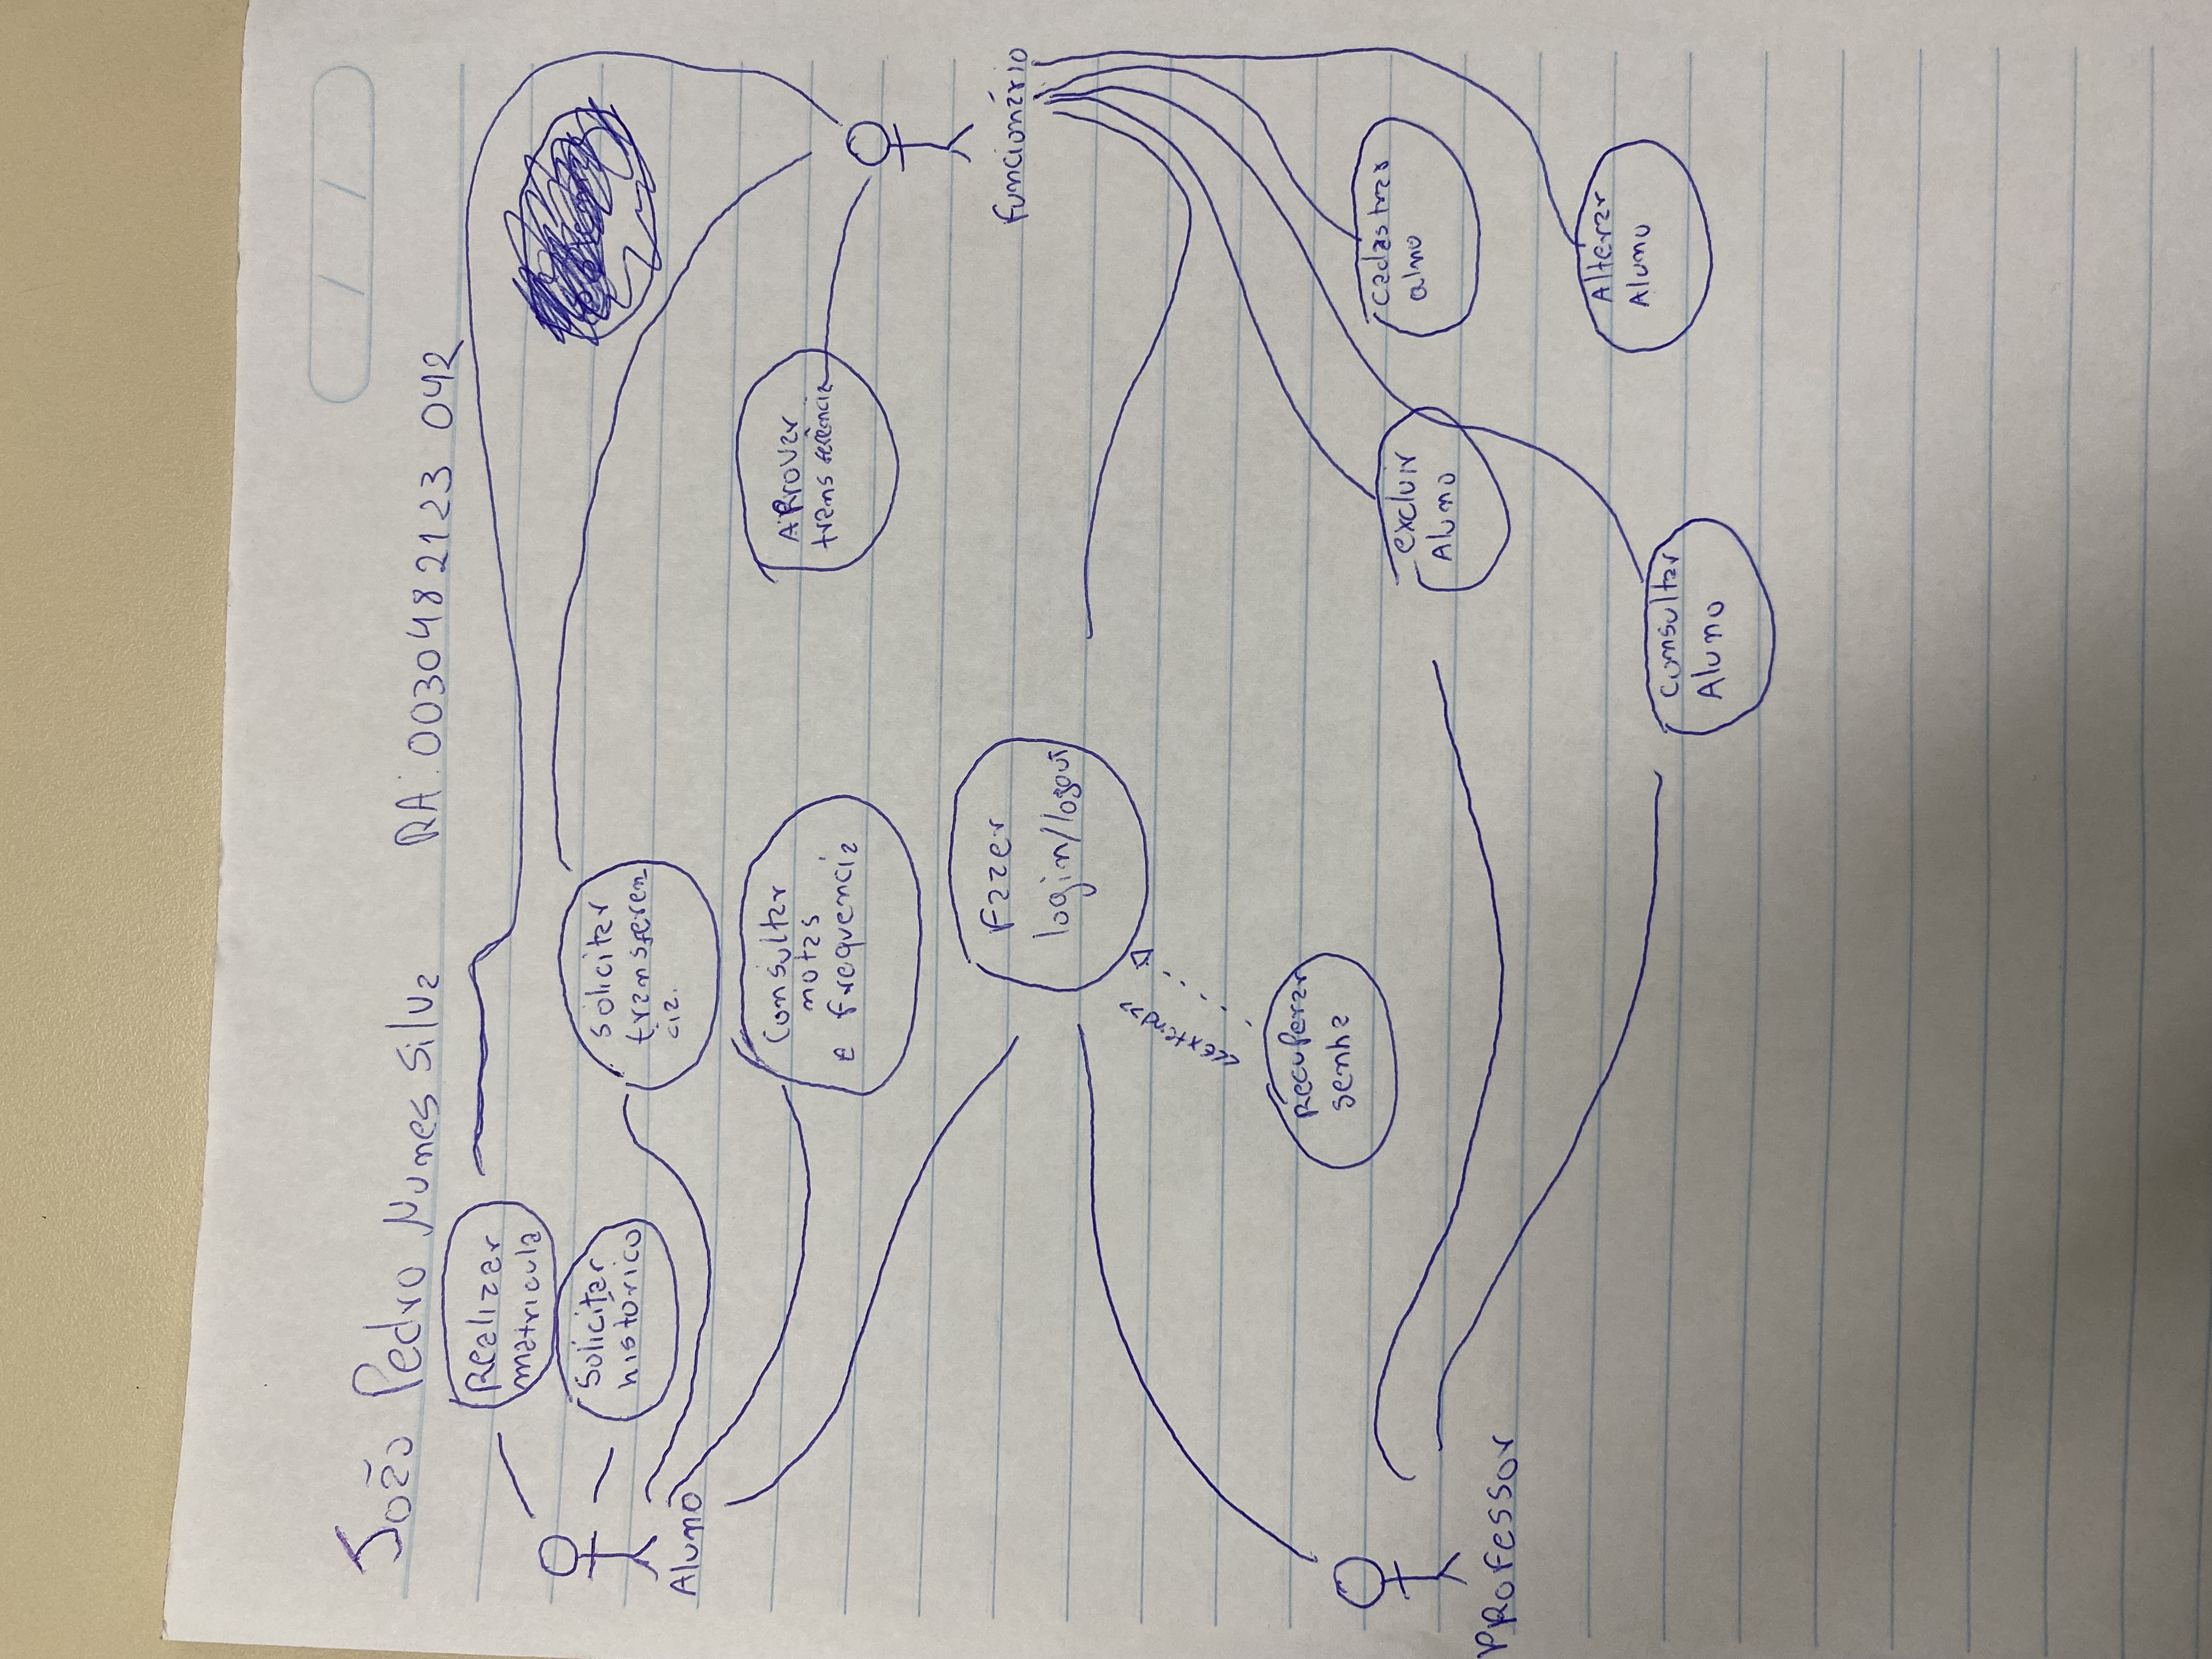 João Pedro Nunes Silva RA: 0030482123 042
Realizar
matricula
Solicitar
histórico
Aluno
Solicitar
transferen_
cia.
Consultar
notas
e frequencia
Aprovar
transferência
Funcionário
Fazer
login/logout
<<extend>>
Recuperar
senha
Professor
excluir
Aluno
cadastrar
alno
Alterar
Aluno
Consultar
Aluno